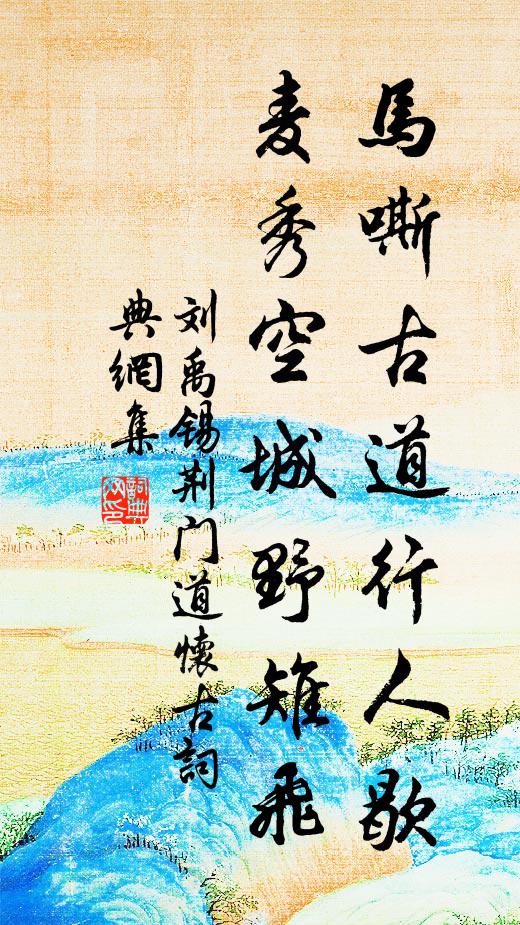 馬嘶古道行人歇
麦秀空城野雉飛
刘禹锡荆门道懷古詞
典網集